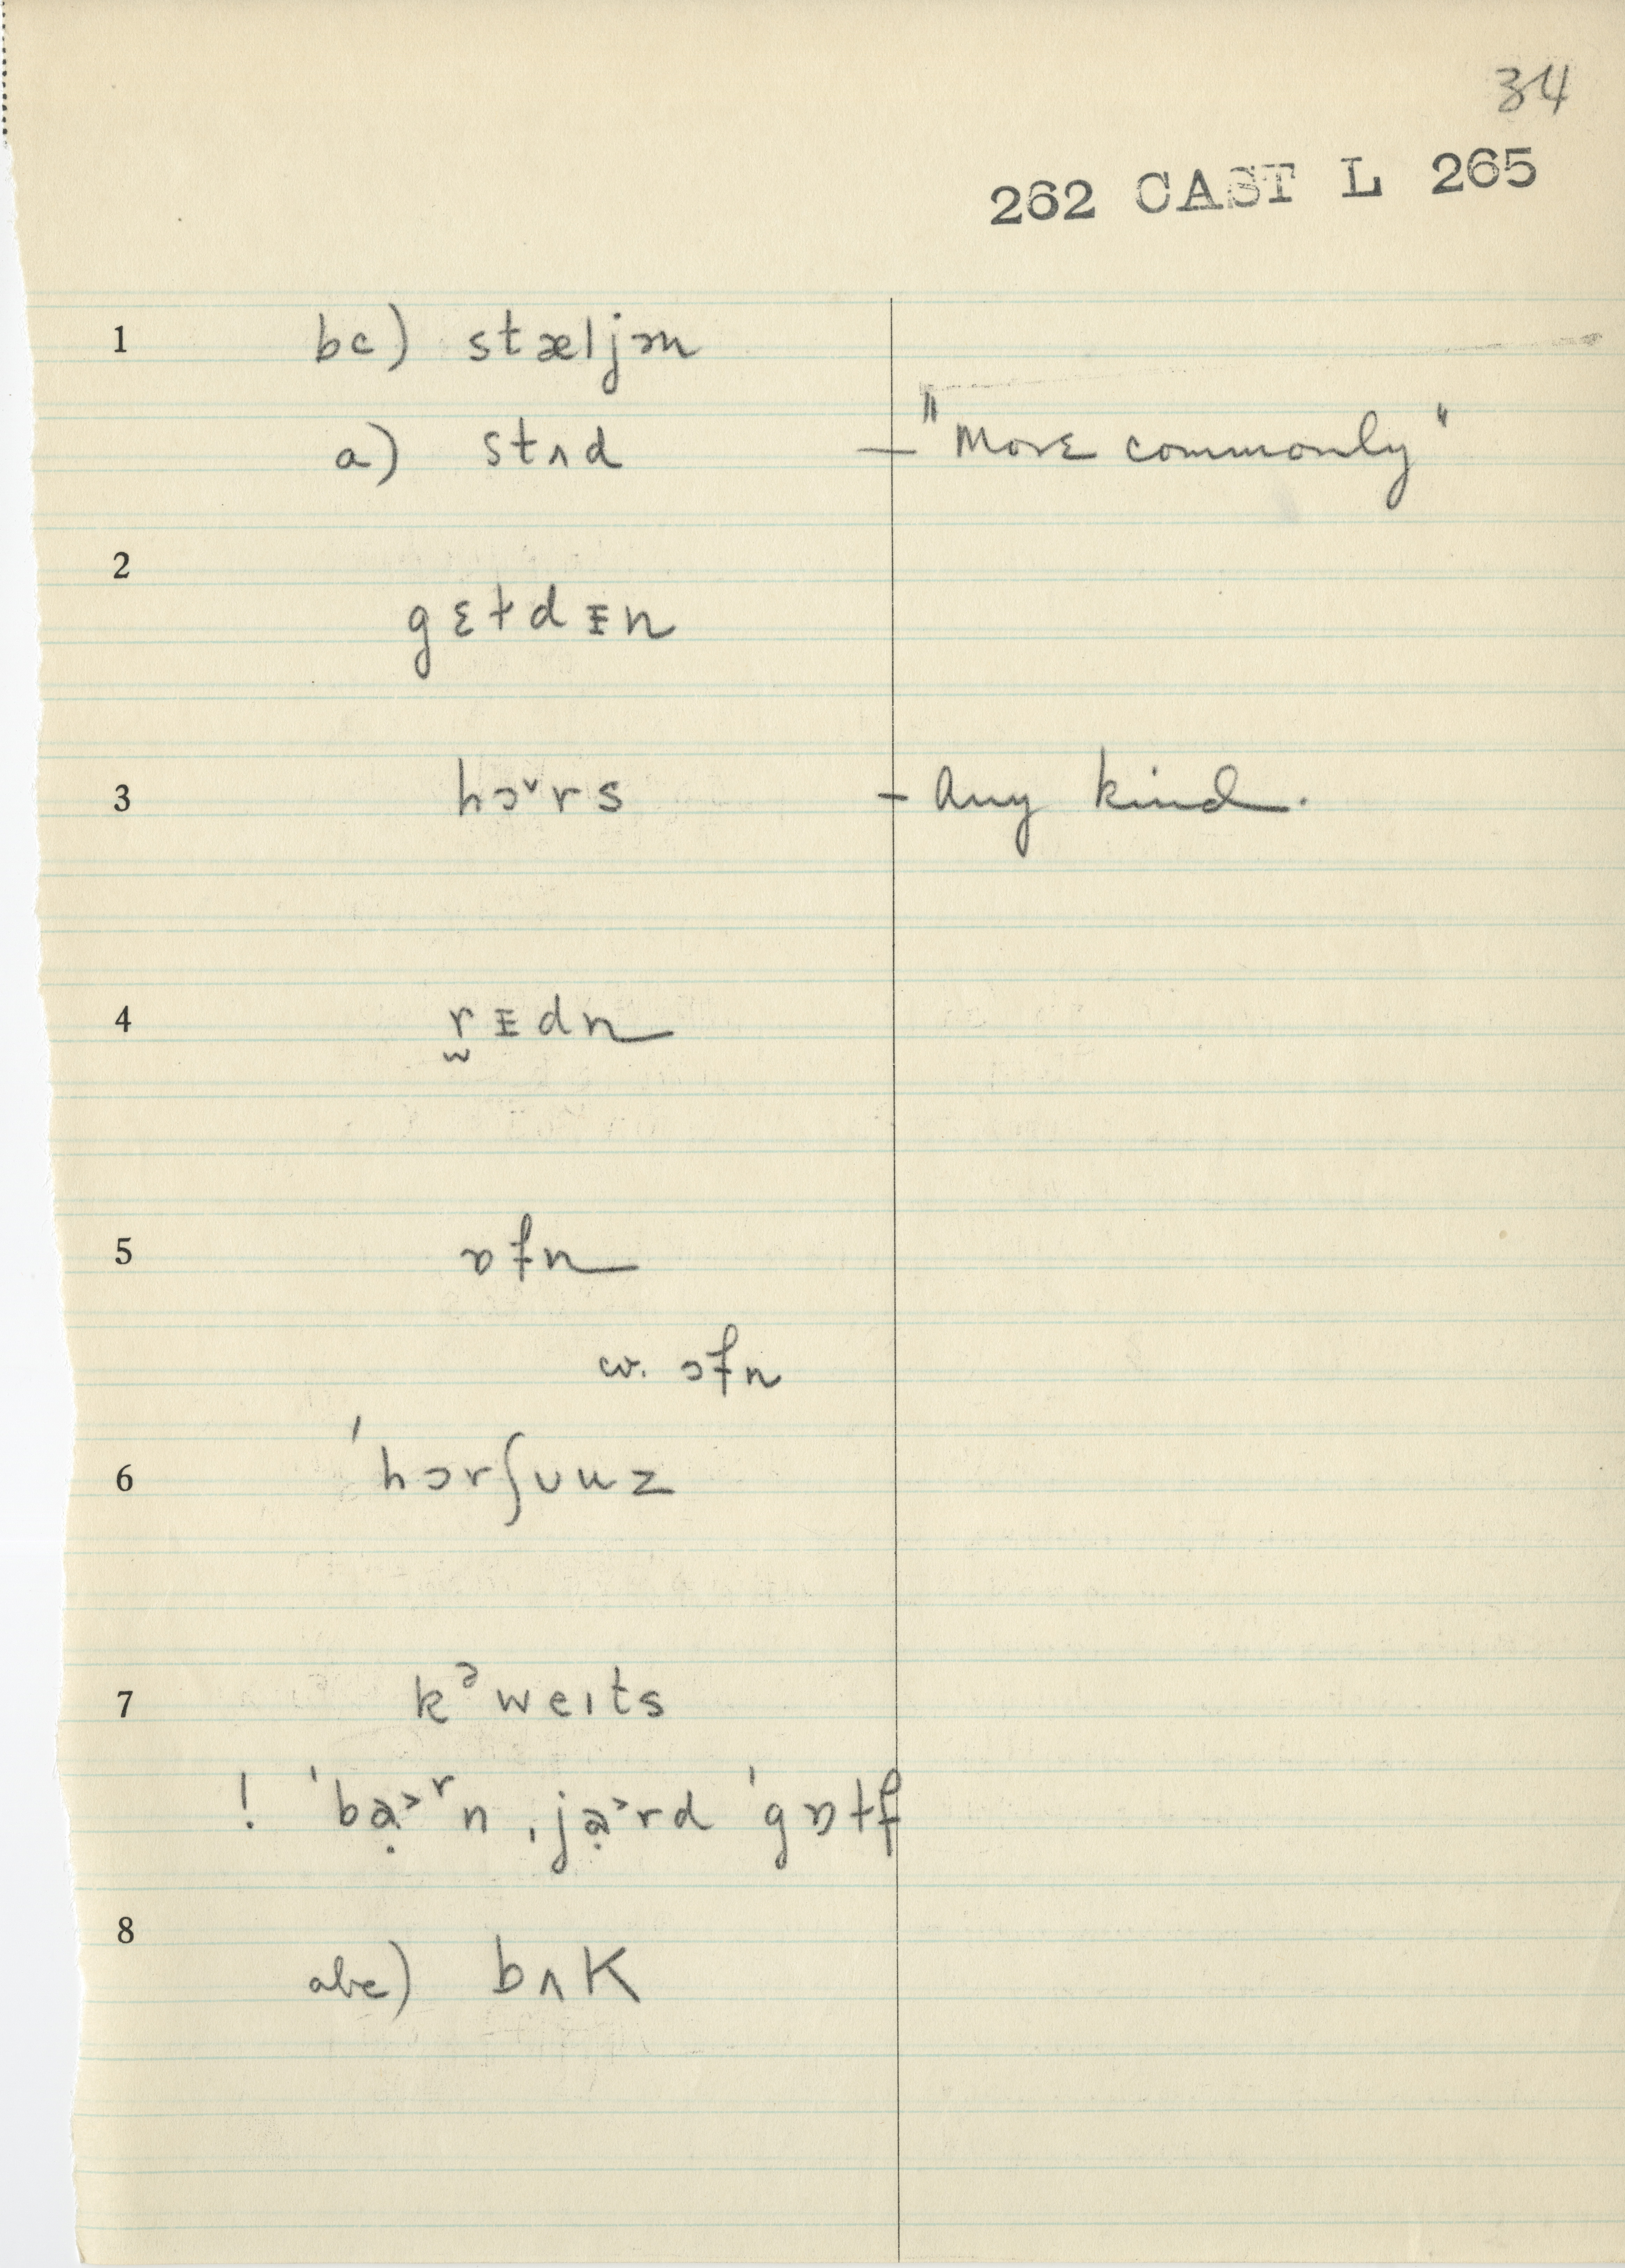 34
262 CAST L 265
1 bc) stæljən
a) stʌd — "More commonly"
2
gɛɫdᵻn
3 hɔˇrs — Any kind.
4 r̫ᵻdn
5 ɒfn
w. ɔfn
6 ˈhɔrʃuuz
7 kᵊweɪts
! ˈbạ˃ʳn ˌjạ˃rd ˈgɒɫf
8
abc) bʌK